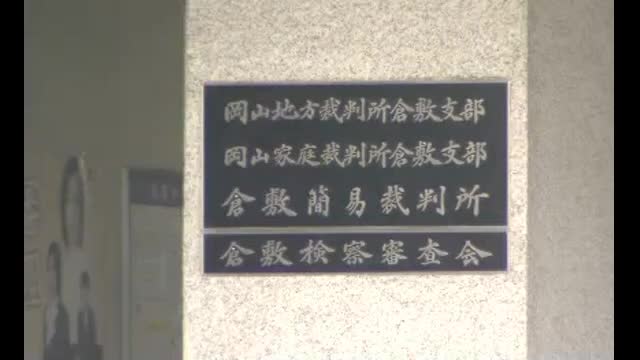 岡山地方裁判所倉敷支部
岡山家庭裁判所倉敷支部
倉敷簡易裁判所
倉敷検察審査会